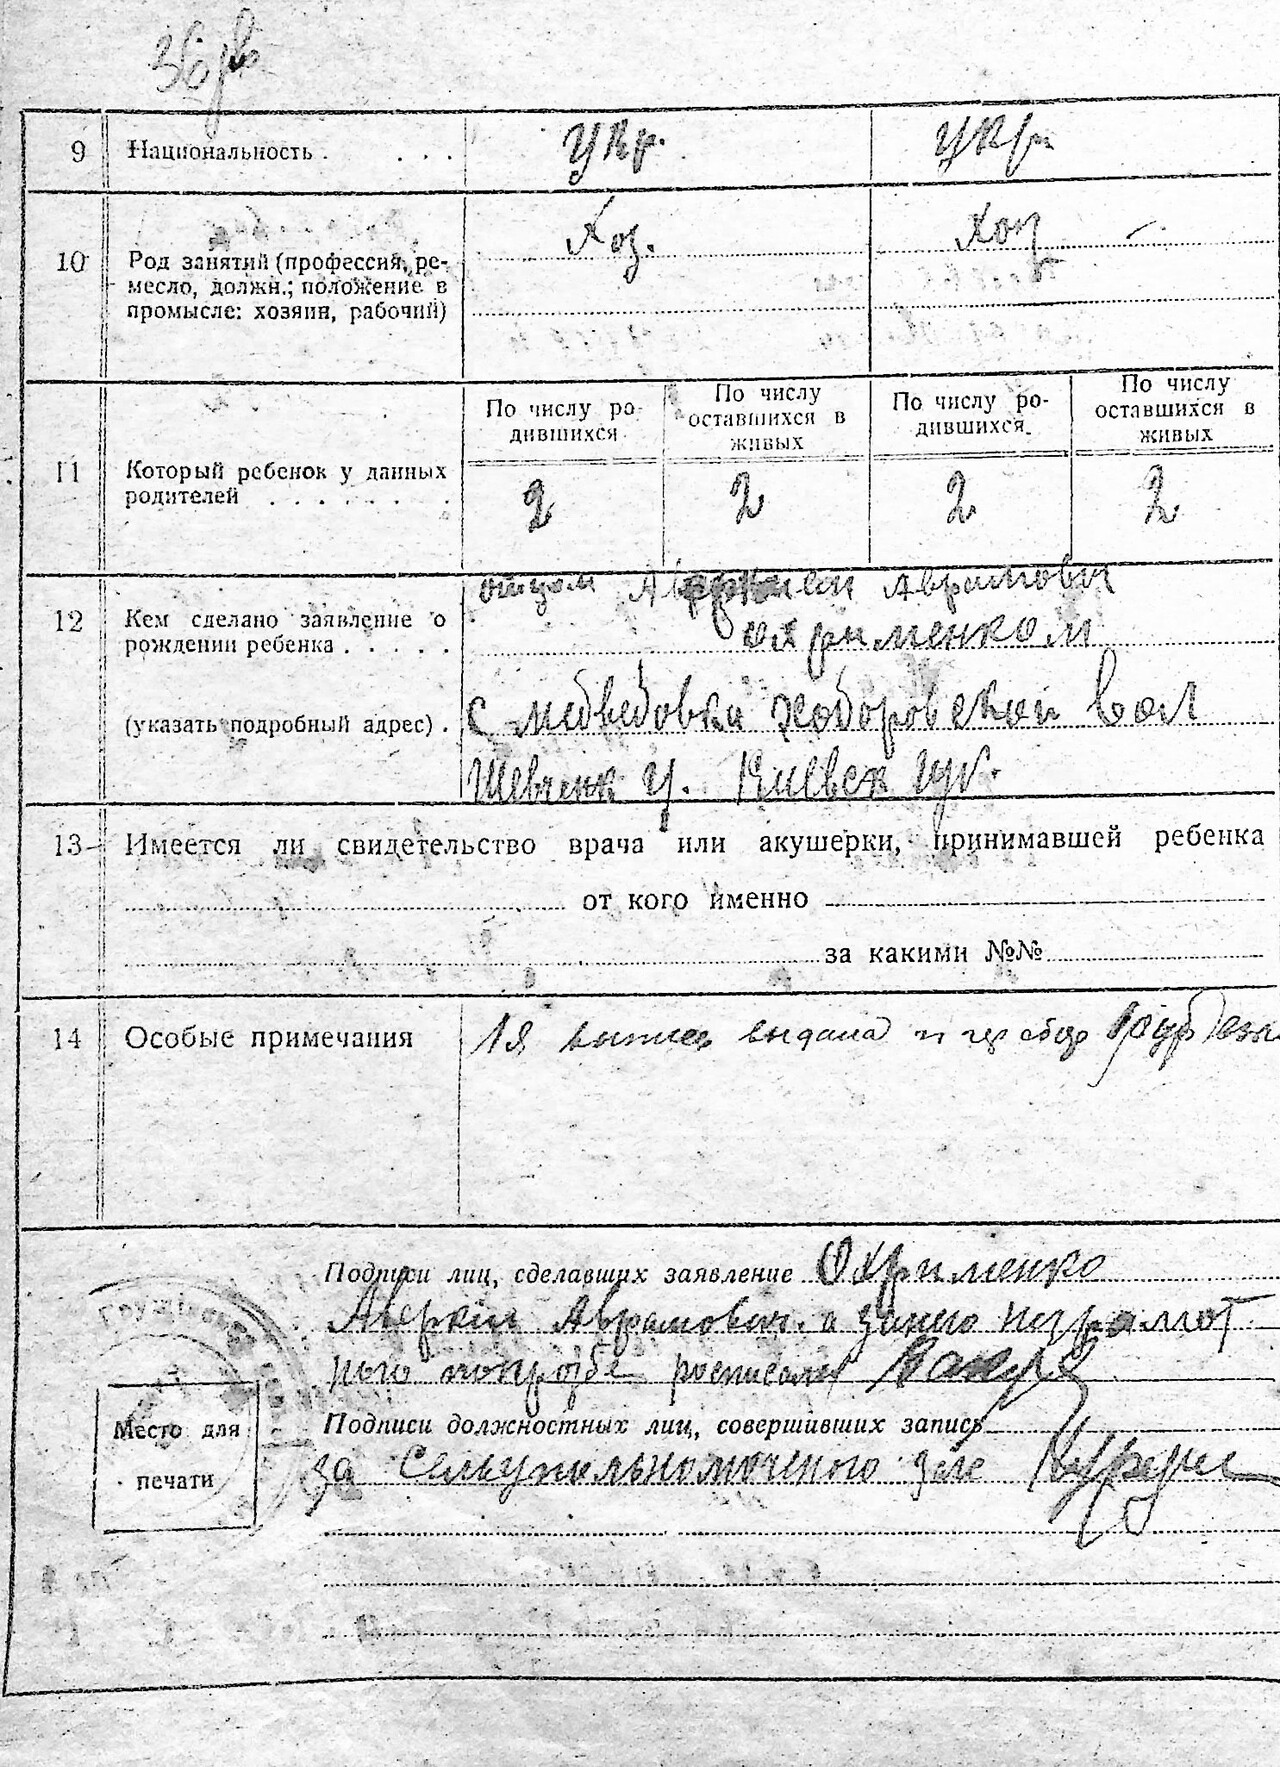 36
9 Национальность . . . . укр. укр
10 Род занятий (профессия, ре-
месло, должн.; положение в
промысле: хозяин, рабочий)
Хоз. Хоз –
По числу ро-
дившихся
По числу
оставшихся в
живых
По числу ро-
дившихся
По числу
оставшихся в
живых
11 Который ребенок у данных
родителей . . . . . . .
2 2 2 2
12 Кем сделано заявление о
рождении ребенка . . . . .
отцом Аврамович
охрименком
(указать подробный адрес) .
с медведовка ходоровской вол
Шевченк у. Киевск губ.
13 Имеется ли свидетельство врача или акушерки, принимавшей ребенка
от кого именно
за какими №№
14 Особые примечания
1я выдана и
Подписи лиц, сделавших заявление Охрименко
Аверкий Аврамович. а занего неграмот
ного попрозбе росписался
Подписи должностных лиц, совершивших запись
за
Место для
печати